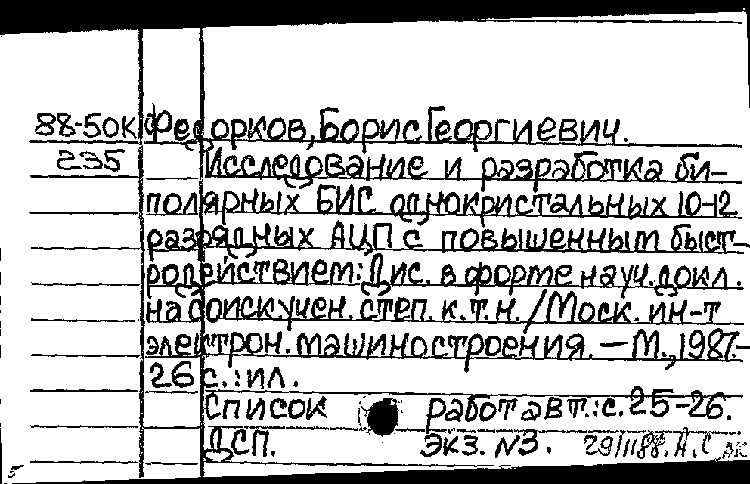 88-50К Федорков, Борис Георгиевич.
235 Исследование и разработка би-
полярных БИС однокристальных 10-12
разрядных АЦП с повышенным быст-
родействием: Дис. в форме науч. докл.
на соиск учен. степ. к.т.н. / Моск. ин-т
электрон. машиностроения. — М., 1987.-
26 с.: ил.
Список работ авт.: с. 25-26.
ДСП. Экз. N3. 29/1188. А.С
5